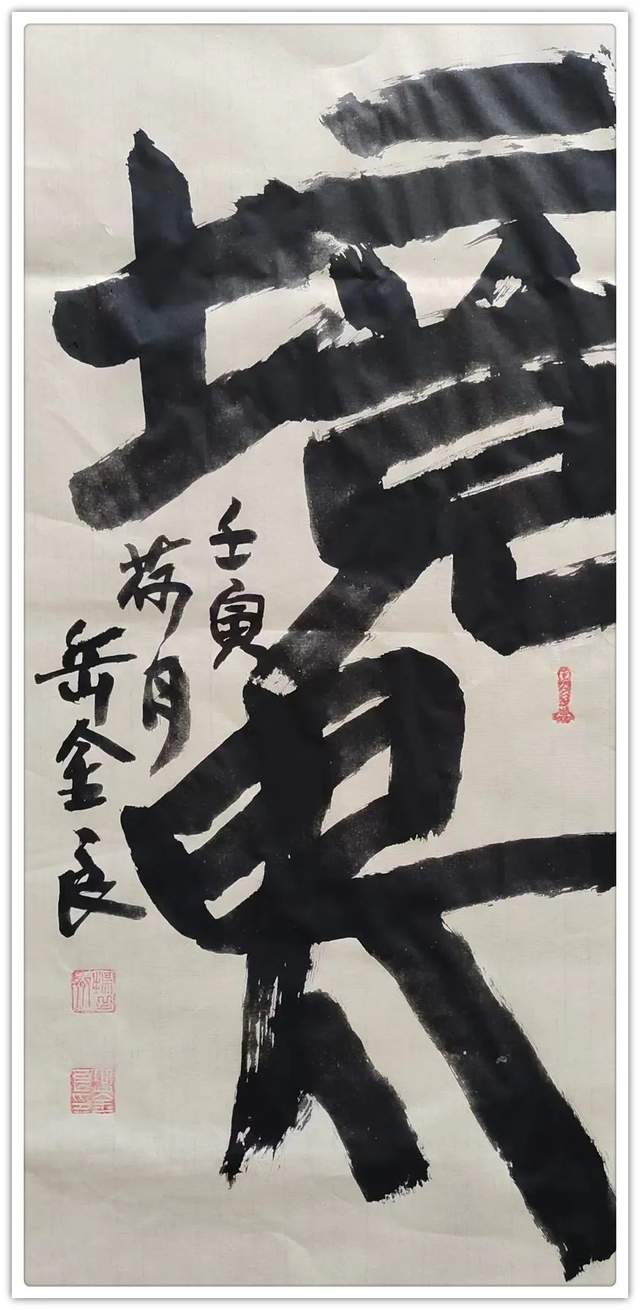 境界
壬寅
荷月
岳金良